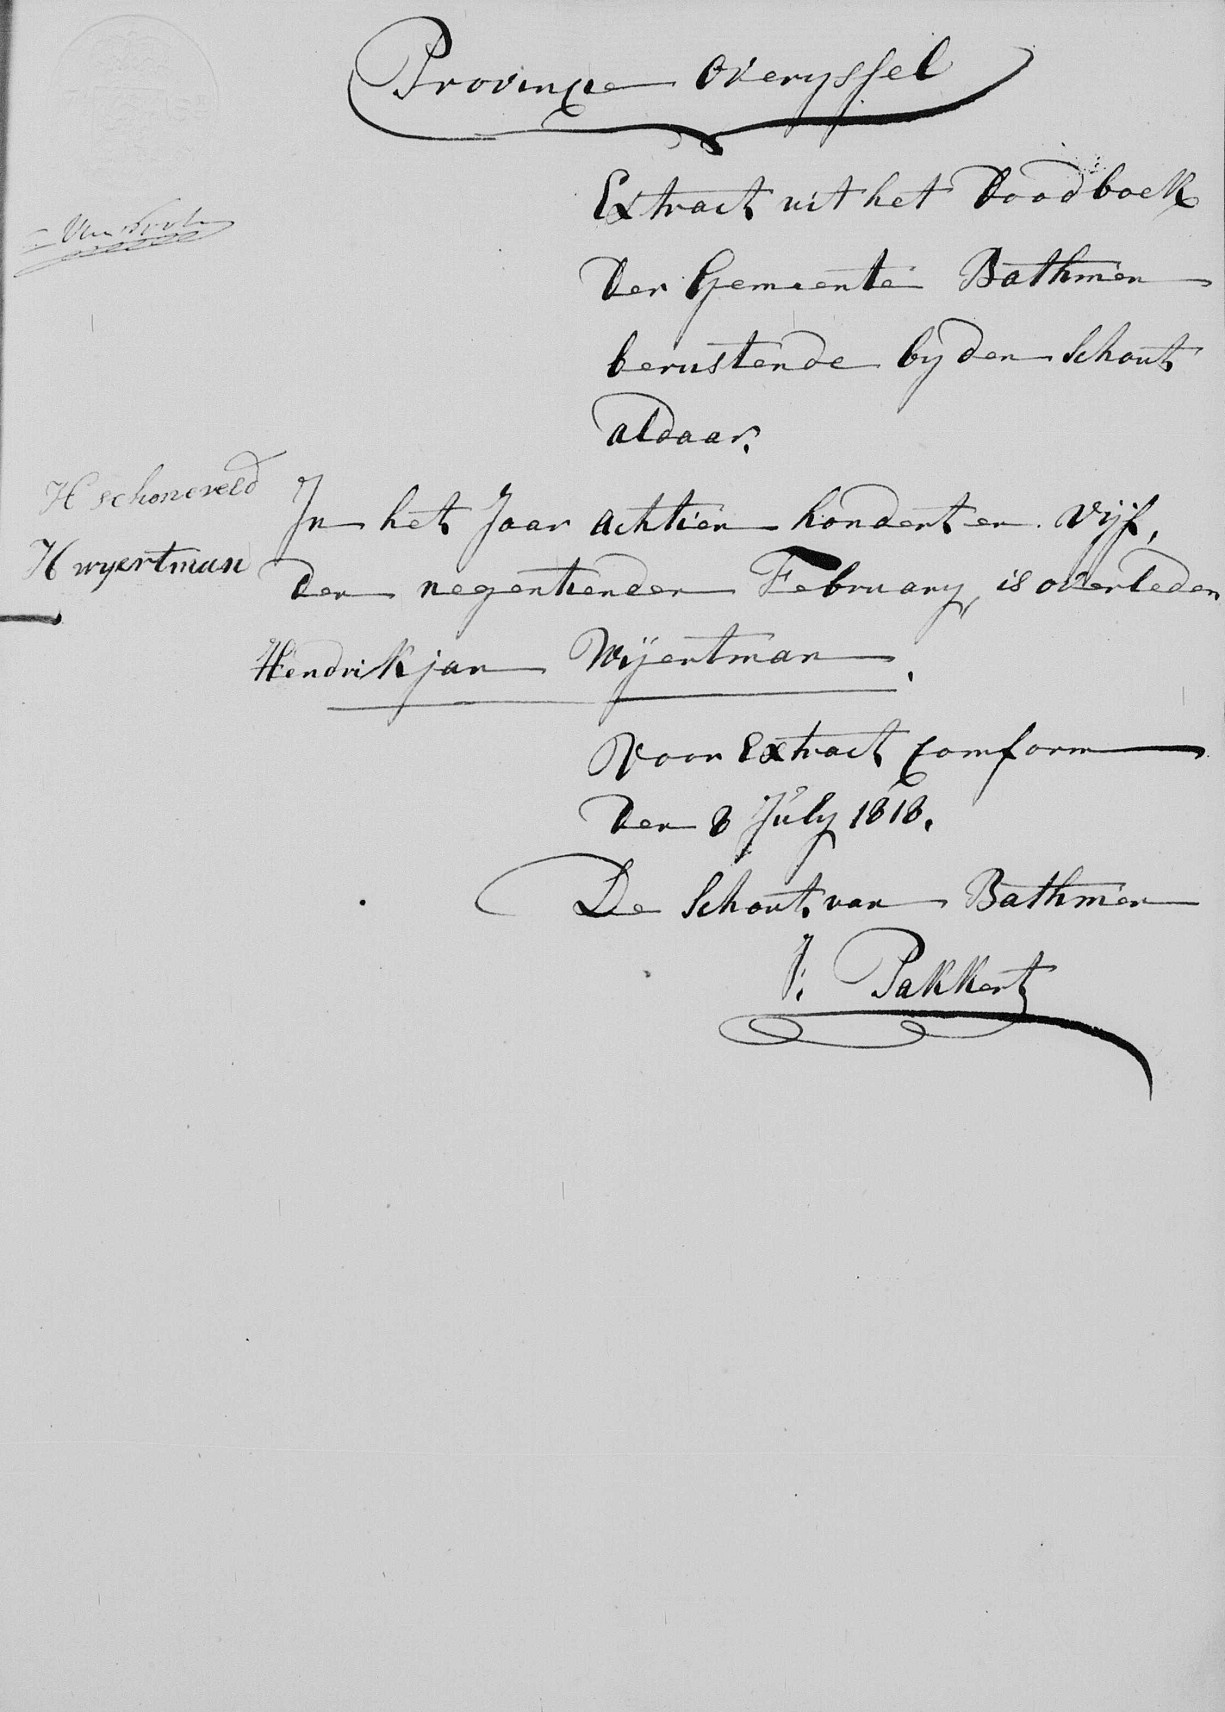 Provincie Overyssel
Extract uit het Doodboek
der Gemeente Bathmen
berustende by den Schout
aldaar.
H schoneveld
H wyertman
In het Jaar achtien hondert en vijf,
den negentienden February, is overleden
Hendrik jan Wijertman.
Voor Extract comform
den 8 July 1818.
De Schout van Bathmen
J: Pakkert